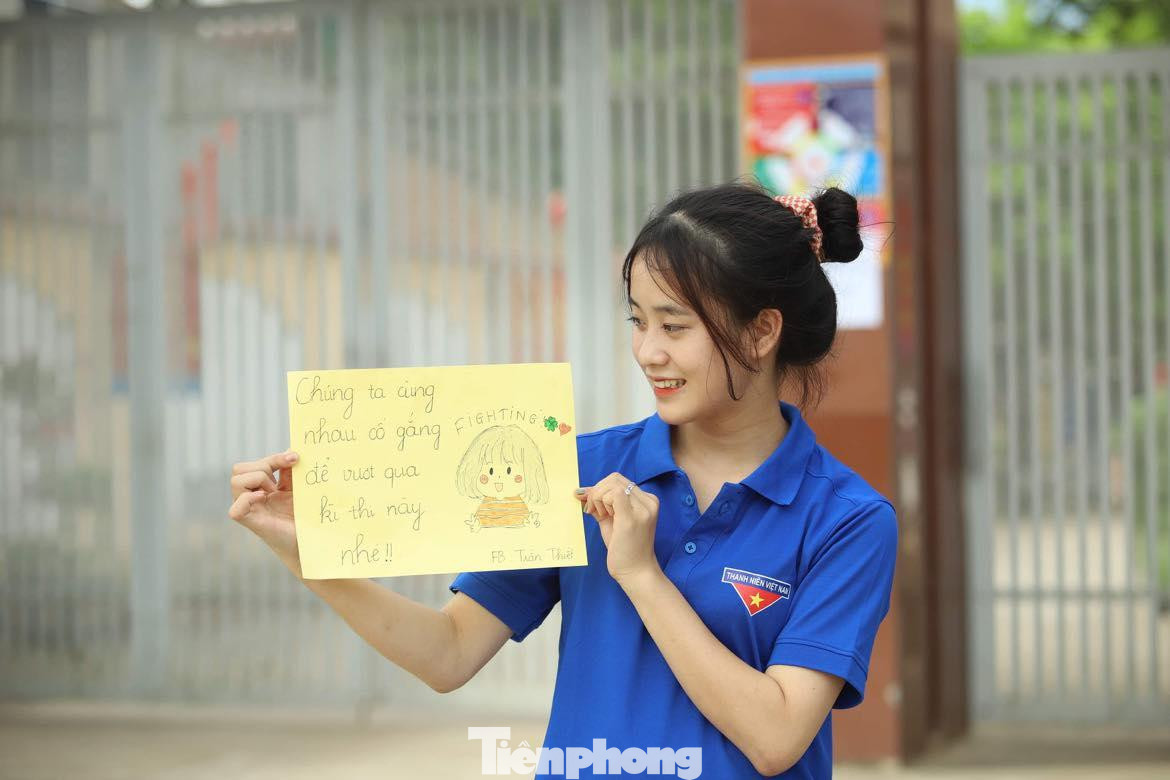 Chúng ta cùng
nhau cố gắng
để vượt qua
kì thi này
nhé!!
FIGHTING
FB. Trần Thiết
THANH NIÊN VIỆT NAM
Tiênphong